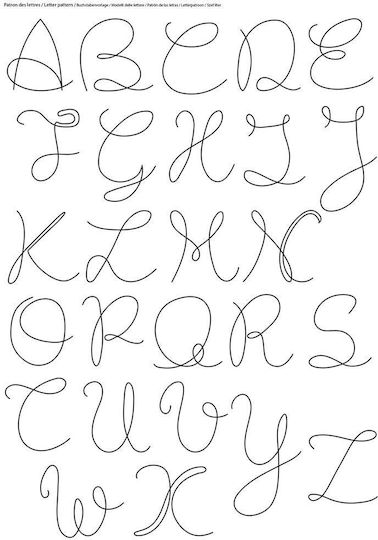 Patron des lettres / Letter pattern / Buchstabenvorlage / Modelli delle lettere / Patrón de las letras / Letterpatroon /
A B C D E
F G H I J
K L M N
O P Q R S
T U V Y
W X Z